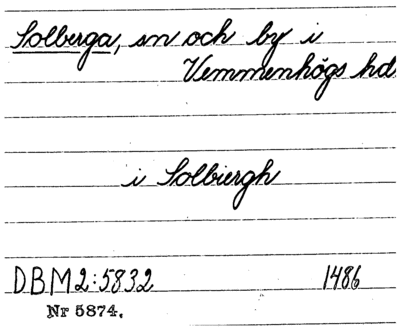 Solberga, sn och by i
Vemmenhögs hd
i Solbiergh
DBM2:5832 1486
Nr 5874.